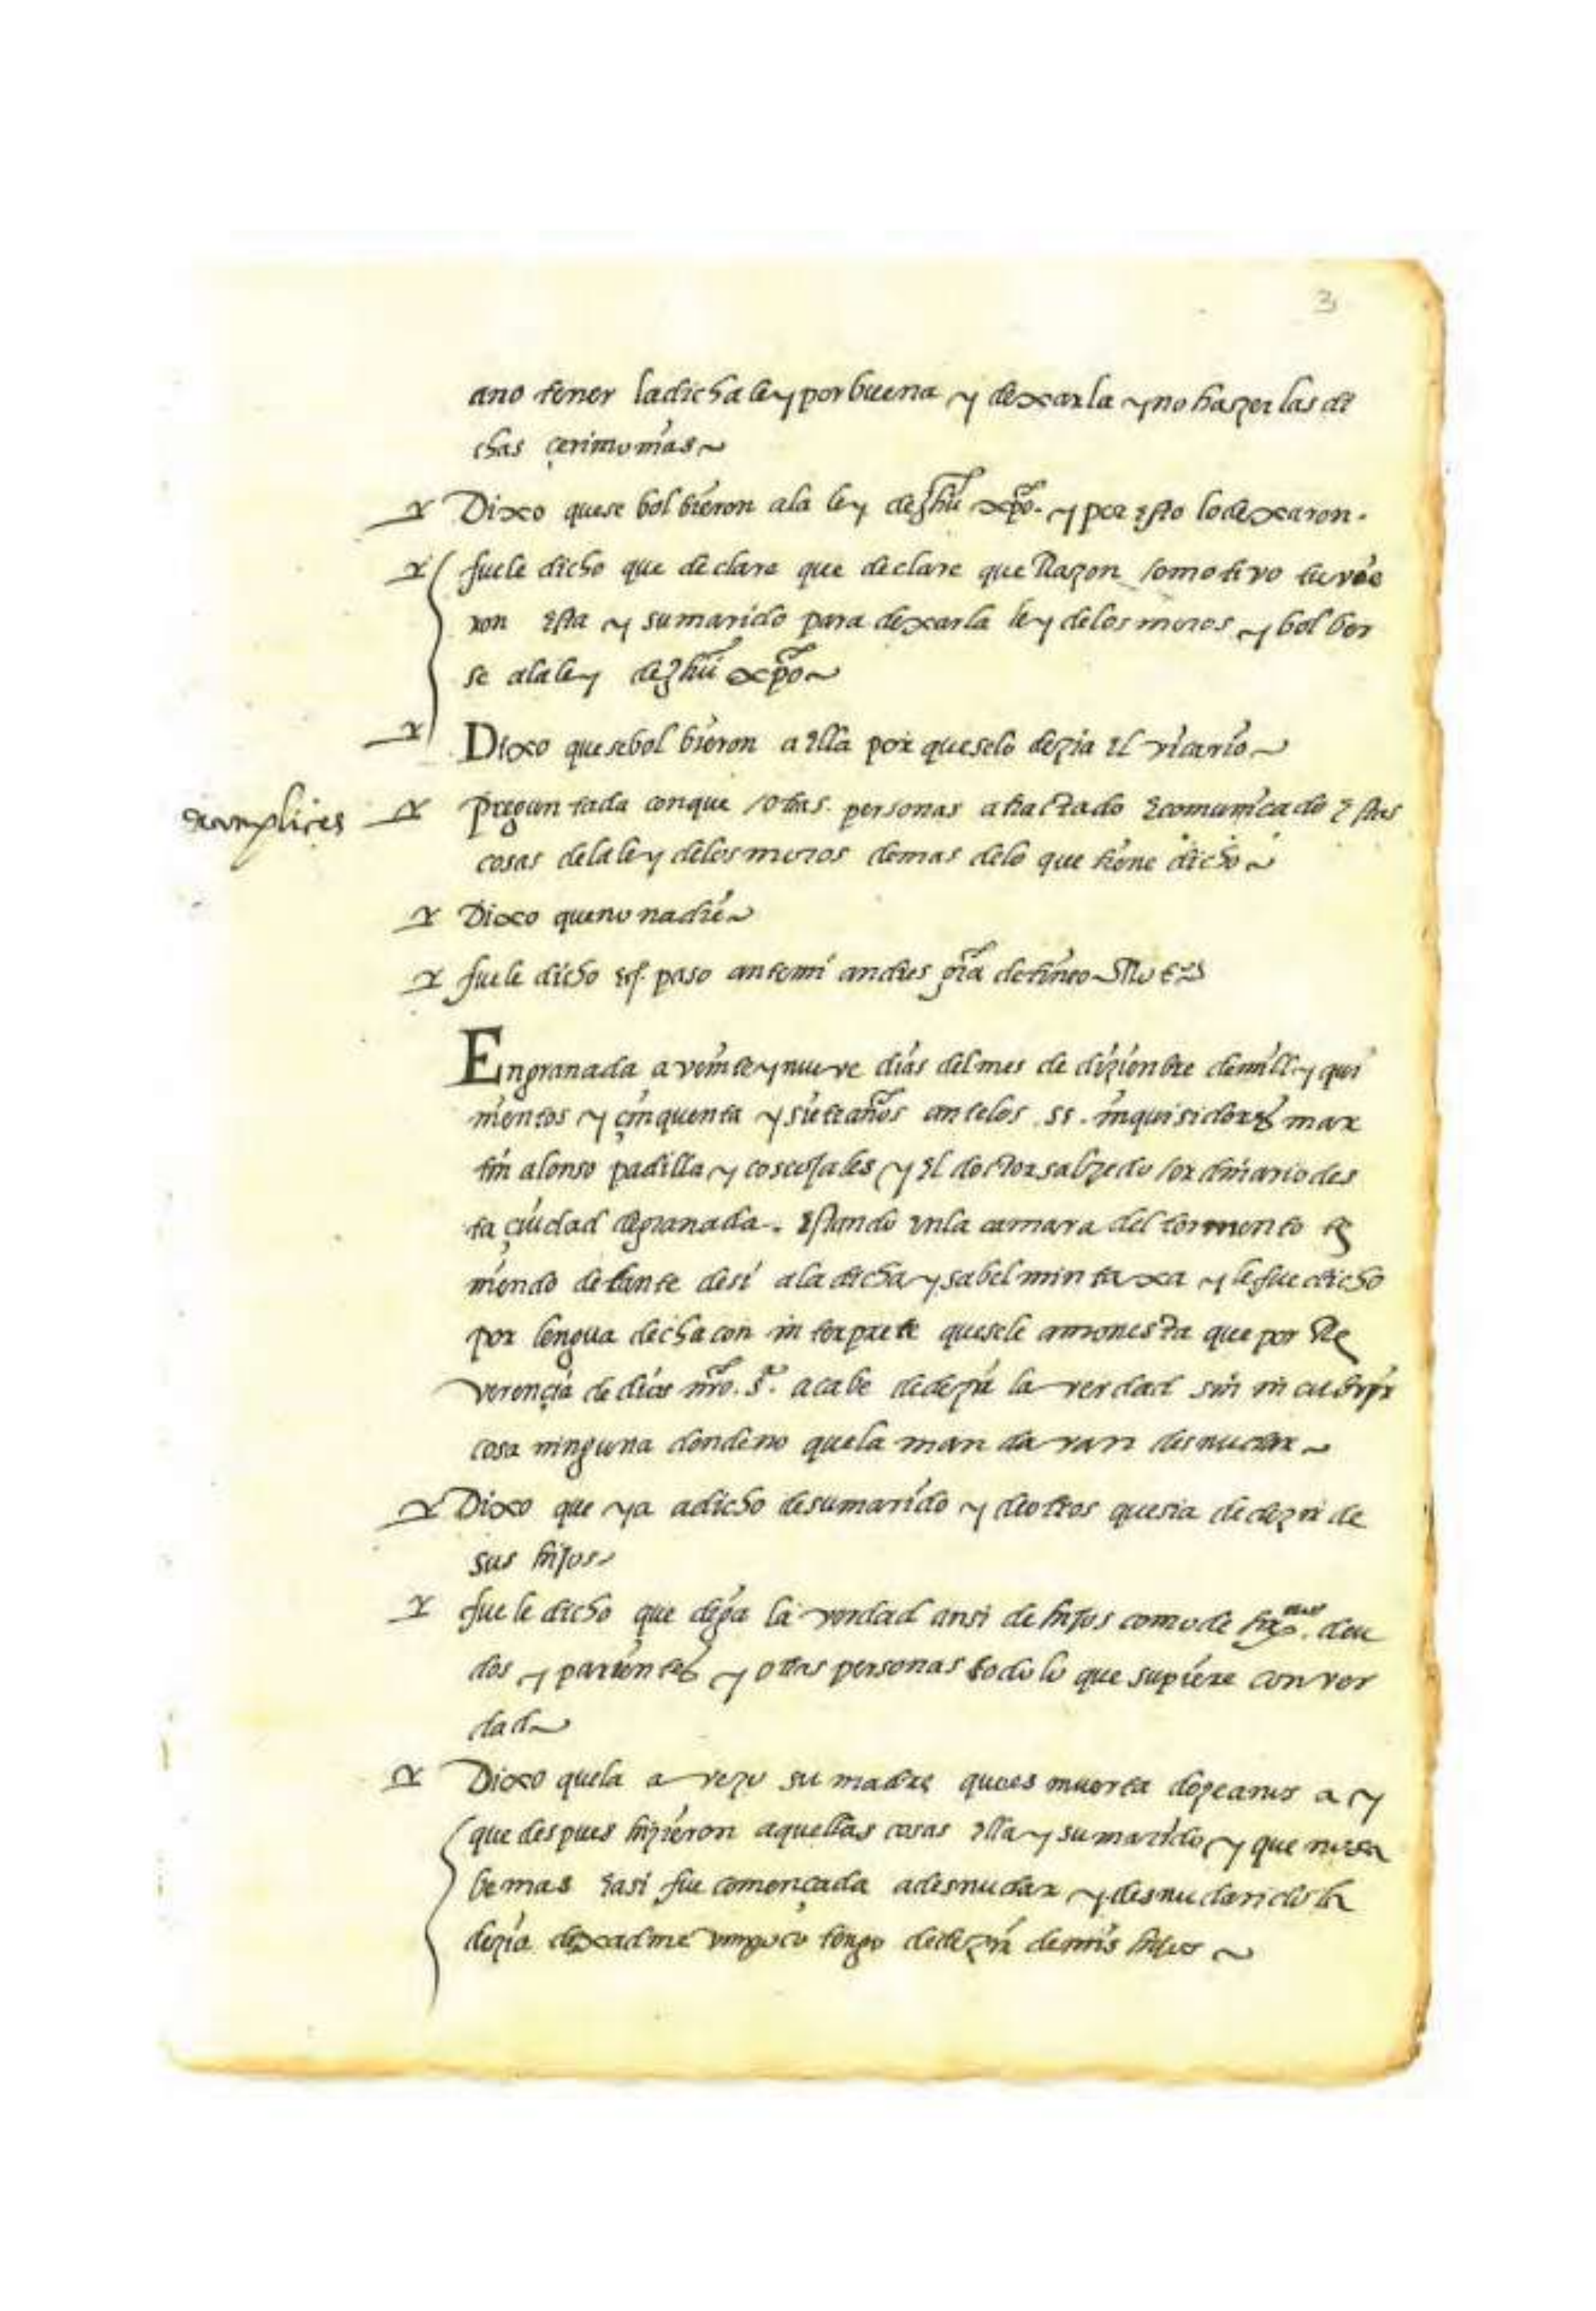 3
ano tener la dicha ley por buena y dexarla y no hazer las di
chas çerimonias
Dixo que se bolbieron a la ley de Jhũ xpõ. y por esto lo dexaron.
fuele dicho que declare que declare que Razon o motivo tuvie
ron esta y su marido para dexar la ley de los moros y bolber
se a la ley de Jhũ xpõ
Dixo que se bolbieron a ella porque se lo dezia el vicario
complices
preguntada con que otras personas a tractado e comunicado estas
cosas de la ley de los moros demas de lo que tiene dicho
Dixo que no nadie
fuele dicho paso ante mi de tineo
En granada a veinte y nueve dias del mes de diziembre de mill y qui
nientos y çinquenta y siete años ante los ss. inquisidores mar
tin alonso padilla y coscojales y el doctor salzedo ordinario des
ta çiudad de granada. estando en la camara del tormento te
niendo delante de si a la dicha ysabel mintaxa y le fue dicho
por lengua de con interprete que se le amonesta que por Re
verençia de dios nrõ. s.r acabe de dezir la verdad sin incubrir
cosa ninguna donde no que la mandaran desnudar
Dixo que ya a dicho de su marido y de otros que sia de dezir de
sus hijos
fuele dicho que diga la verdad ansi de hijos como de deu
dos y parientes y otras personas todo lo que supiere con ver
dad
Dixo que la a vezo su madre que es muerta doze años a y
que despues hizieron aquellas cosas ella y su marido y que no sa
be mas e asi fue començada a desnudar y desnudandola
dezia dexadme tengo de dezir de mis hijos